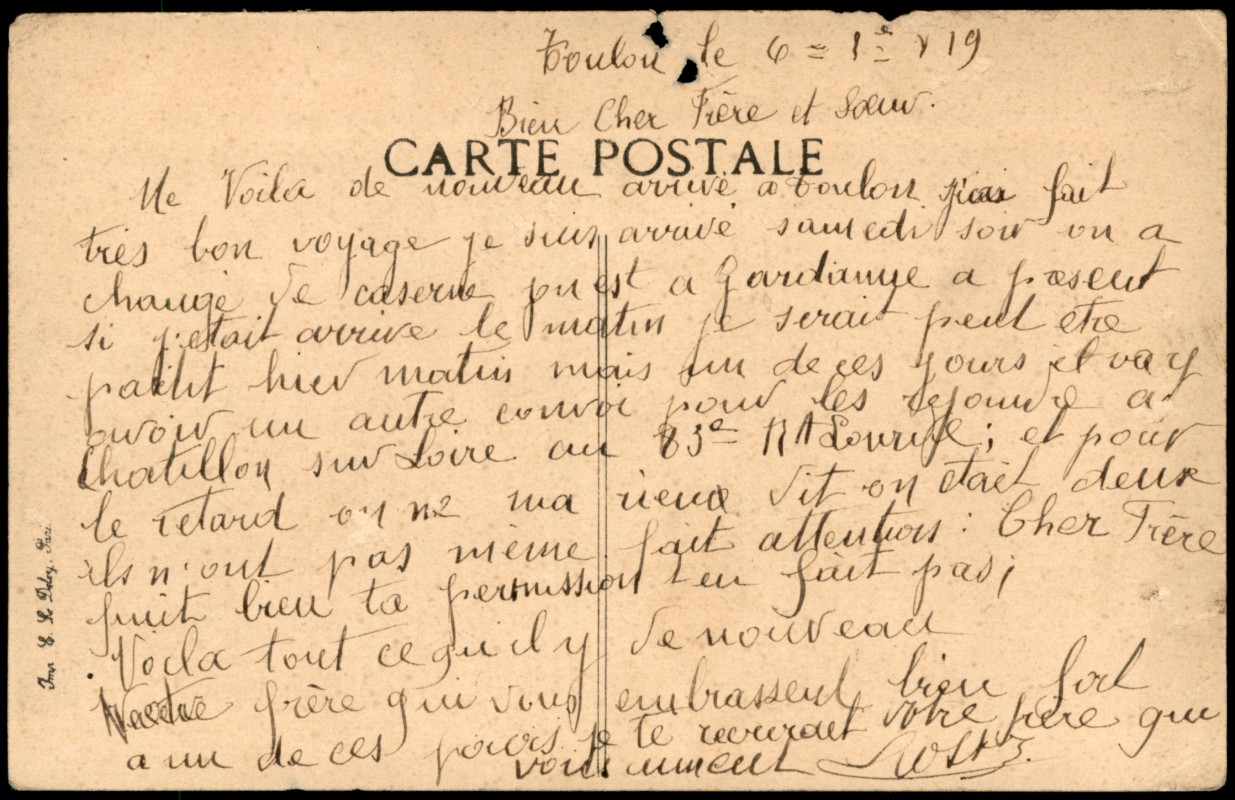 Toulon le 6 = 1e = 19
Bien Cher Frère et Sœur.
CARTE POSTALE
Me Voila de nouveau arrivé a toulon j'ai fait
très bon voyage je suis arrivé samedi soir on a
changé de caserne on est a Gardanne a present
si j'etait arrive le matin je serait peut etre
partit hier matin mais un de ces jours il va y
avoir un autre convoi pour les rejoindre a
Chatillon sur Loire au 83e = RA ; et pour
le retard on ne ma rien dit on etait deux
ils n'ont pas même fait attention : Cher Frère
finit bien ta permission t'en fait pas ;
Voila tout ce qu'il y de nouveau
frère qui vous embrassent bien fort
a un de ces jours je te votre frère qui
vous aiment
Imp E. Le Deley. Paris